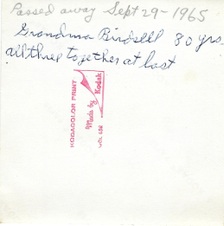 Passed away Sept 29-1965
Grandma Birdsell 80 yrs.
all three together at last
KODACOLOR PRINT
Made by Kodak